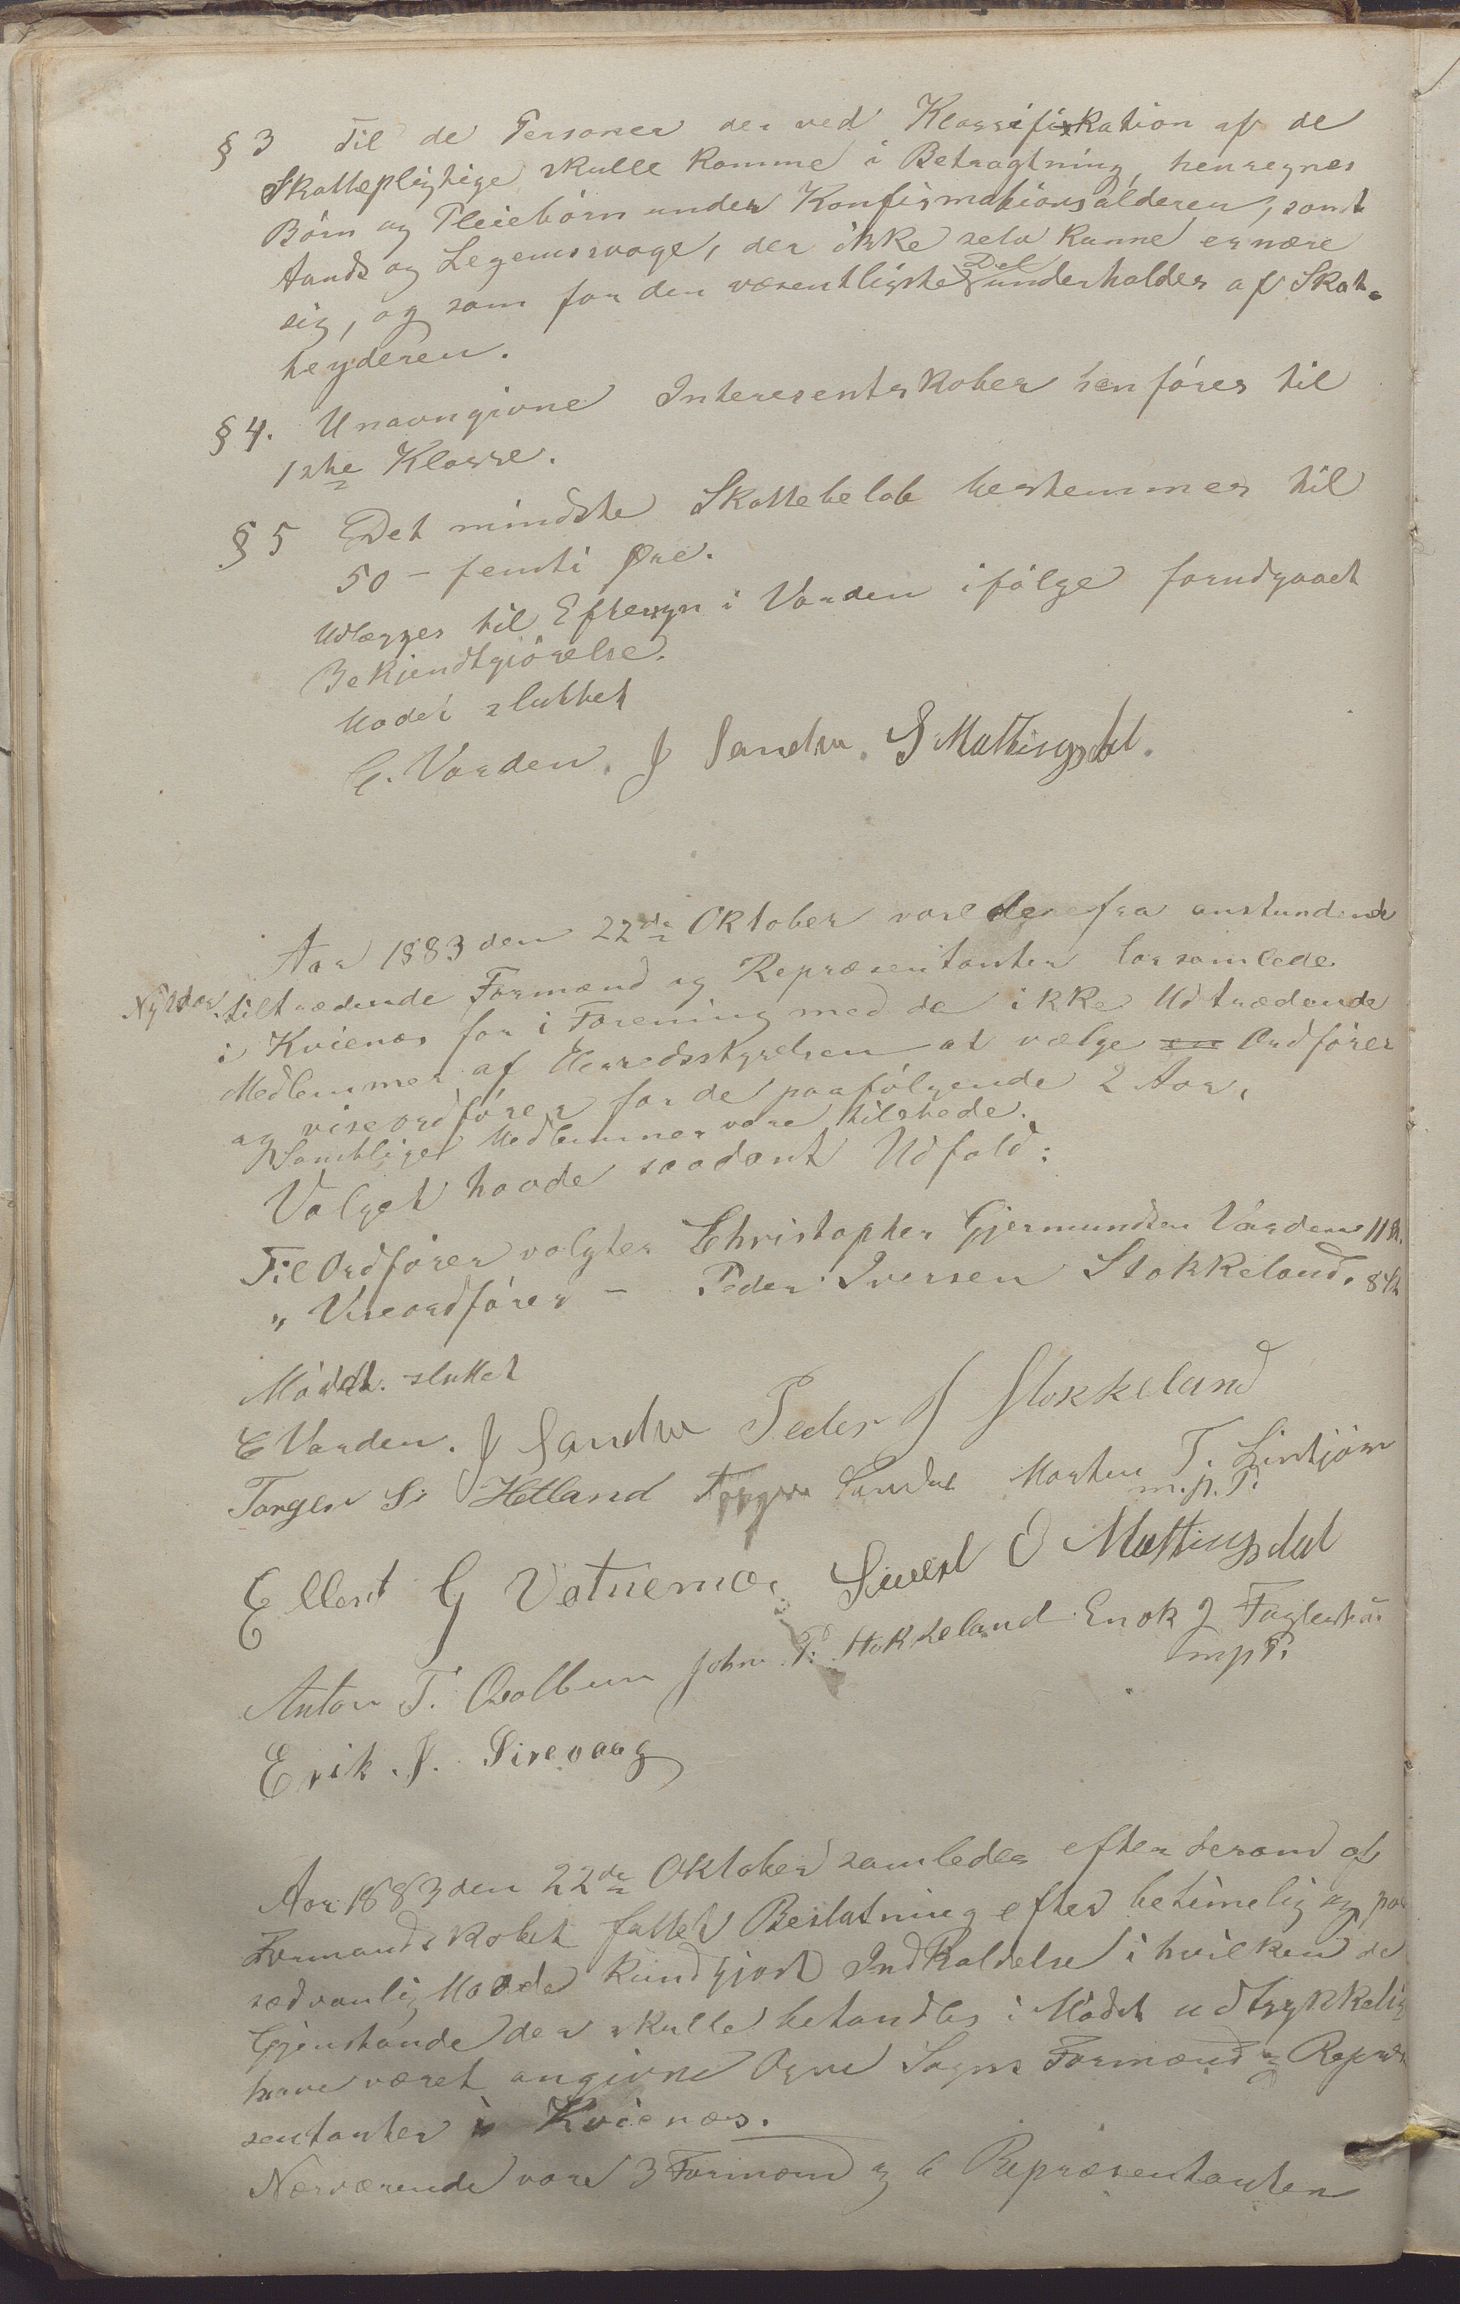 § 3 Til de Personer der ved Klassifikation af de
Skattepligtige skulle komme i Betragtning, henregnes
Børn og Pleiebørn under Konfirmationsalderen, samt
Aands og Legemssvage, der ikke selv kunne ernære
sig, og som for den væsentligste Del underholdes af Skat-
teyderen.
§ 4. Unavngivne Interesentskaber henføres til
1ste Klasse.
§ 5 Det mindste Skattebeløb bestemmes til
50 – femti Øre.
Udlægges til Eftersyn i Varden ifølge forudgaaet
Bekjendtgjørelse.
Mødet sluttet
C. Varden. J Sandve. S Mattingsdal.
Aar 1883 den 22de Oktober vare de fra anstundende
Nytaar tiltrædende Formænd og Repræsentanter forsamlede
i Kvienæs for i Forening med de ikke Udtrædende
Medlemmer af Herredsstyrelsen at vælge en Ordfører
og viseordfører for de paafølgende 2 Aar.
Samtlige Medlemmer vare tilstede.
Valget havde saadant Udfald:
Til Ordfører valgtes Christopher Gjermundsen Varden 11 St.
" Viseordfører – Peder Iversen Stokkeland. 8 St
Mødet sluttet
C Varden. J Sandve Peder J Stokkeland
Torger S. Hetland Morten T. Lintjørn
m.p.P.
Ellert G Vatnemo, Sivert O Mattingsdal
Anton T. Qvalbein John P. Stokkeland Enok J Fuglestad
mpP.
Erik J. Sirevaag
Aar 1883 den 22de Oktober samledes efter derom af
Formandskabet fattet Beslutning efter betimelig og paa
sædvanlig Maade kundgjort Indkaldelse i hvilken de
Gjenstande der skulle behandles i Mødet udtrykkelig
have været angivne Ogne Sogns Formænd og Repræ-
sentanter i Kvienæs.
Nærværende vare 3 Formænd og 6 Repræsentanter